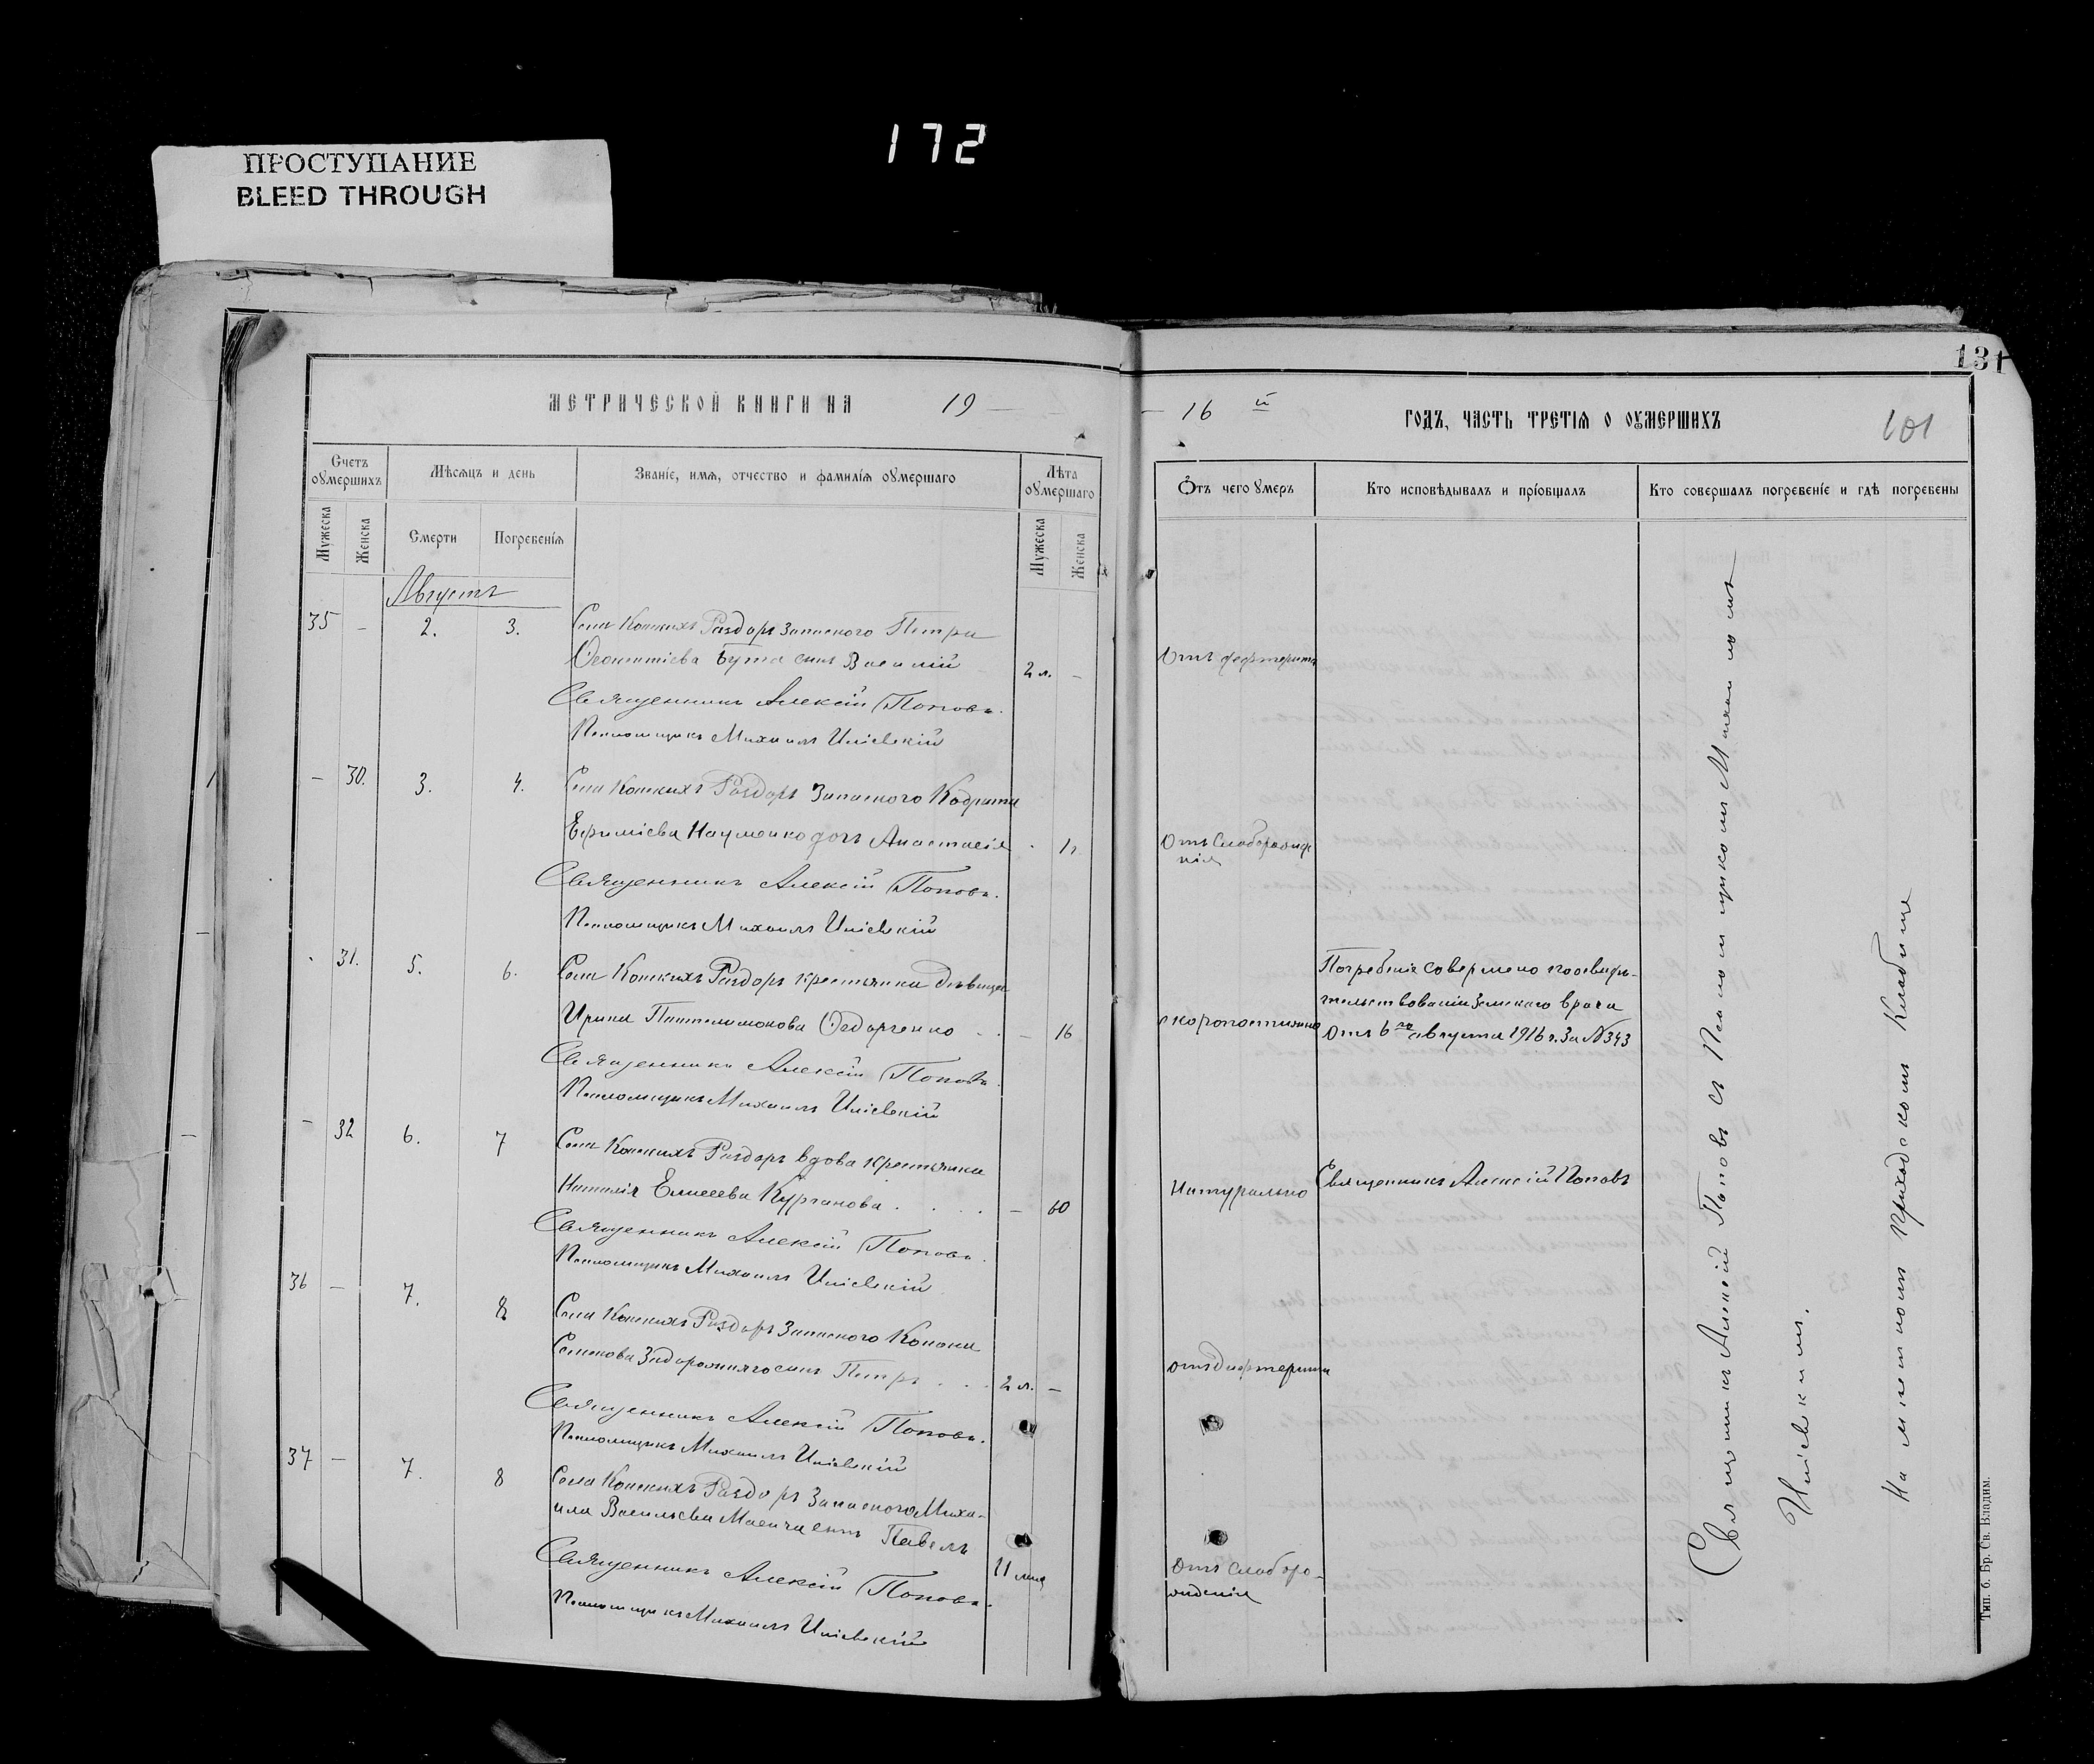 172
ПРОСТУПАНИЕ
BLEED THROUGH
131
МЕТРИЧЕСКОЙ КНИГИ НА 19
16 й ГОДЪ, ЧАСТЬ ТРЕТІЯ О ОУМЕРШИХЪ
101
Счетъ оумершихъ
Мѣсяцъ и день
Званіе, имя, отчество и фамилія оумершаго
Лѣта оумершаго
Отъ чего умеръ
Кто исповѣдывалъ и пріобщалъ
Кто совершалъ погребеніе и гдѣ погребены
Мужеска
Женска
Смерти
Погребенія
Мужеска
Женска
Августъ
35 - 2. 3. Села Конскихъ Раздоръ запасного Петра
Феоктистова Бута сынъ Василій 2 л. -
Священникъ Алексій Поповъ.
Псаломщикъ Михаилъ Иліевскій
- 30. 3. 4. Села Конскихъ Раздоръ Запасного Кодрата
Ефиміева Науменко дочь Анастасія
Отъ Слаборожде
нія
Священникъ Алексій Поповъ.
Псаломщикъ Михаилъ Иліевскій
31. 5. 6. Села Конскихъ Раздоръ крестьянка дѣвица
Ирина Пантелимонова Федорченко - 16
скоропостижно
Погребеніе совершено по освидѣ-
тельствованіи Земскаго врача
отъ 6го августа 1916 г. За № 343
Священникъ Алексій Поповъ.
Псаломщикъ Михаилъ Иліевскій
- 32 6. 7 Села Конскихъ Раздоръ вдова крестьянка
Наталія Елисеева Курганова - 60
Натурально
Священникъ Алексій Поповъ
Священникъ Алексій Поповъ.
Псаломщикъ Михаилъ Иліевскій
36 - 7. 8 Села Конскихъ Раздоръ Запасного Конона
Семенова Задорожняго сынъ Петръ 2 л. -
отъ дифтерита
Священникъ Алексій Поповъ.
Псаломщикъ Михаилъ Иліевскій
37 - 7. 8 Села Конскихъ Раздоръ Запасного Миха-
ила Васильева сынъ Павелъ
11 мца
Отъ слаборо-
жденія
Священникъ Алексій Поповъ.
Псаломщикъ Михаилъ Иліевскій
Священникъ Алексій Поповъ съ Псаломщикомъ Михаиломъ
Иліевскимъ.
На мѣстномъ приходскомъ кладбище
Тип. б. Бр. Св. Владим.